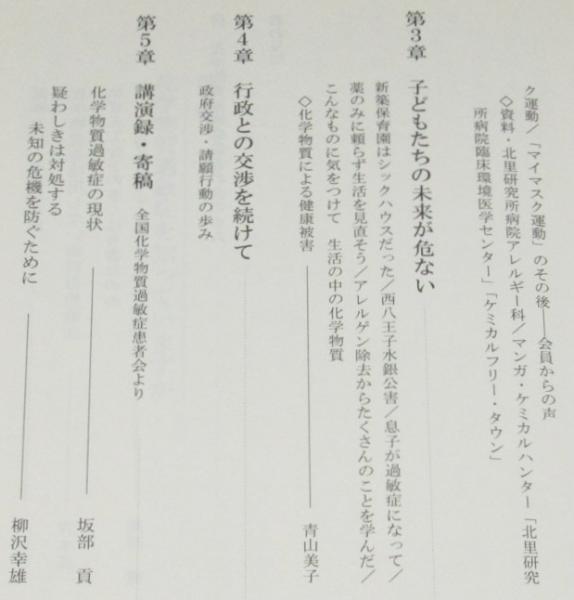 ク運動／「マイマスク運動」のその後──会員からの声
◇資料・北里研究所病院アレルギー科／マンガ・ケミカルハンター「北里研究
所病院臨床環境医学センター」「ケミカルフリー・タウン」
第3章　子どもたちの未来が危ない
新築保育園はシックハウスだった／西八王子水銀公害／息子が過敏症になって／
薬のみに頼らず生活を見直そう／アレルゲン除去からたくさんのことを学んだ／
こんなものに気をつけて　生活の中の化学物質
◇化学物質による健康被害────青山美子
第4章　行政との交渉を続けて
政府交渉・請願行動の歩み
第5章　講演録・寄稿　全国化学物質過敏症患者会より
化学物質過敏症の現状────坂部　貢
疑わしきは対処する
未知の危機を防ぐために────柳沢幸雄